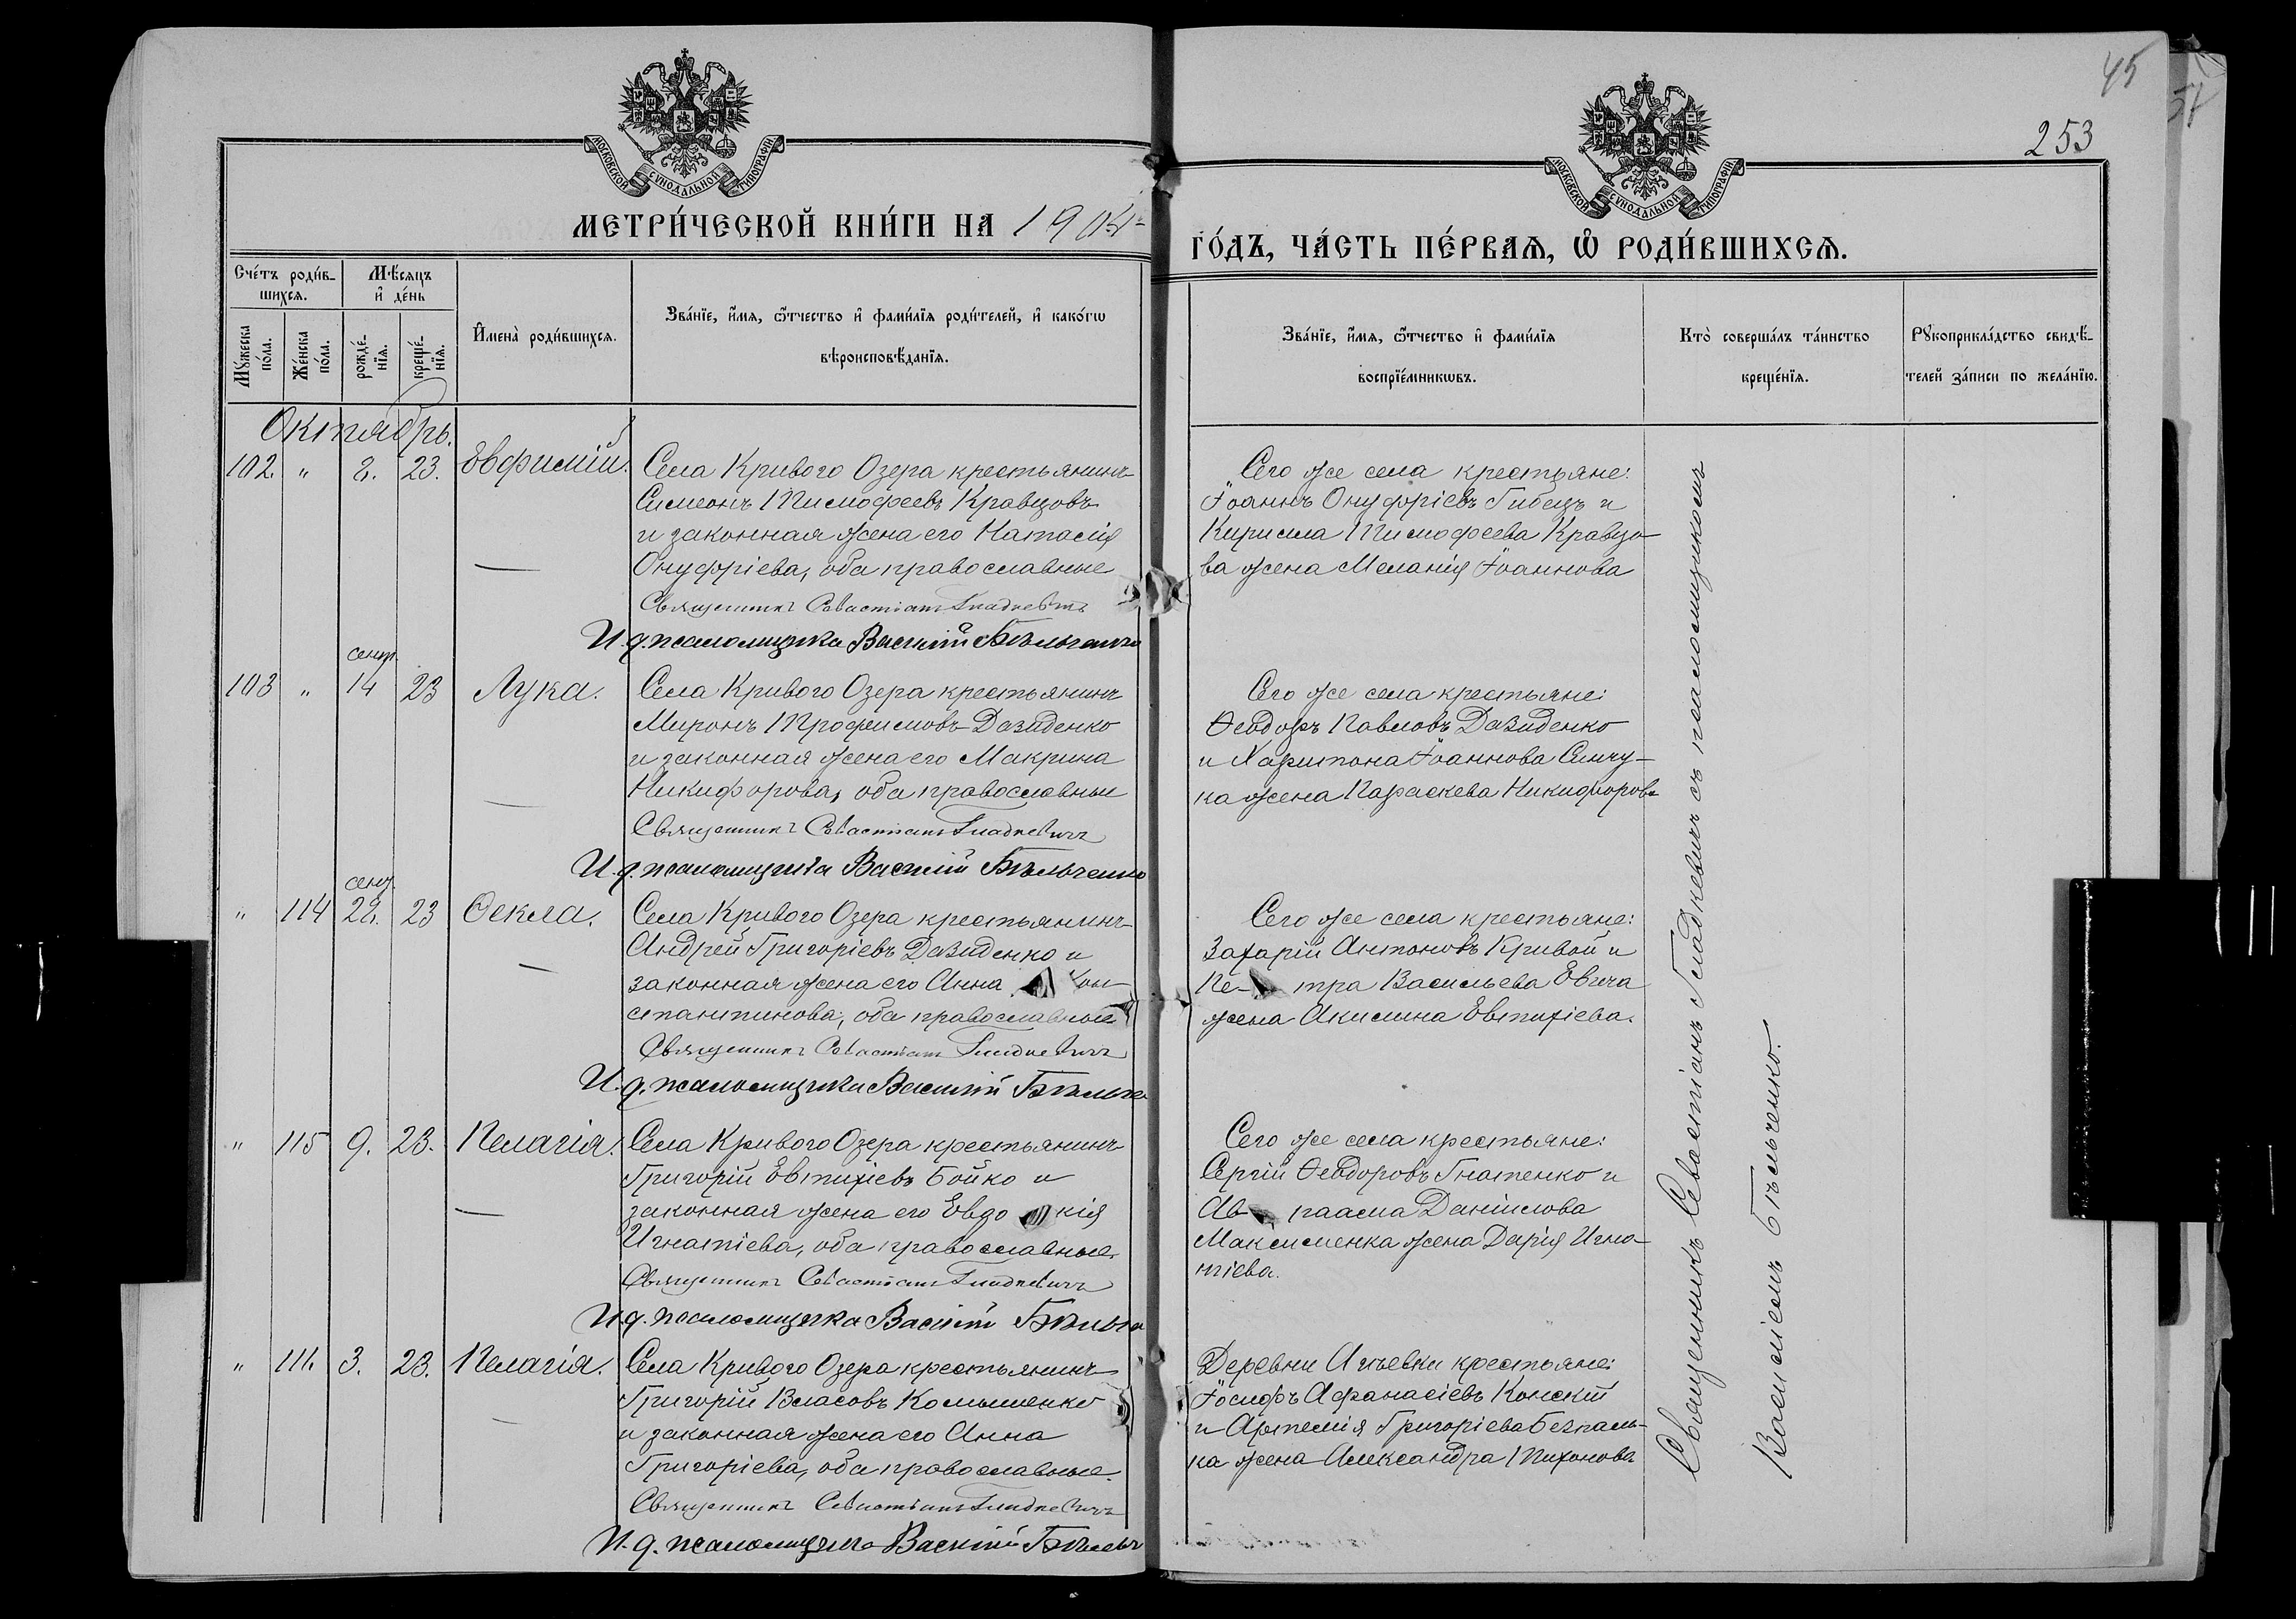 45
253
МОСКОВСКОЙ СѴНОДАЛЬНОЙ ТИПОГРАФІИ
МОСКОВСКОЙ СѴНОДАЛЬНОЙ ТИПОГРАФІИ
МЕТРИ́ЧЕСКОЙ КНИ́ГИ НА 1904
ГО́ДЪ, ЧА́СТЬ ПЕ́РВАѦ, Ѽ РОДИ́ВШИХСѦ.
Сче́тъ роди́в-
шихсѧ.
Мѣ́сѧцъ
и҆ де́нь
Мꙋ́жеска
по́ла.
Же́нска
по́ла.
рожде́-
нїѧ.
креще́-
нїѧ.
И҆мена̀ роди́вшихсѧ.
Зва́нїе, и҆́мѧ, ѻ҆́тчество и҆ фами́лїѧ роди́телей, и҆ како́гѡ
вѣроисповѣ́данїѧ.
Зва́нїе, и҆́мѧ, ѻ҆́тчество и҆ фами́лїѧ
воспрїе́мникѡвъ.
Кто̀ соверша́лъ та́инство
креще́нїѧ.
Рꙋкоприкла́дство свидѣ́-
телей за́писи по жела́нїю.
Октябрь.
102. " 8. 23. Евфимій. Села Кривого Озера крестьянинъ
Симеонъ Тимофеевъ Кравцовъ
и законная жена его Наталія
Онуфріева, оба православные
Священникъ Севастіанъ Гладкевичъ
И. д. псаломщика Василій Бѣльченко
Сего же села крестьяне:
Іоаннъ Онуфріевъ Гибецъ и
Кирилла Тимофеева Кравцо-
ва жена Меланія Іоаннова
сент.
103 " 14 23 Лука. Села Кривого Озера крестьянинъ
Миронъ Трофимовъ Давиденко
и законная жена его Макрина
Никифорова, оба православные
Священникъ Севастіанъ Гладкевичъ
И. д. псаломщика Василій Бѣльченко
Сего же села крестьяне:
Ѳеодоръ Павловъ Давиденко
и Харитона Іоаннова Синчу-
ка жена Параскева Никифорова
сент.
" 114 28. 23 Ѳекла. Села Кривого Озера крестьянинъ
Андрей Григоріевъ Давиденко и
законная жена его Анна Кон-
стантинова, оба православные
Священникъ Севастіанъ Гладкевичъ
И. д. псаломщика Василій Бѣльче
Сего же села крестьяне:
Захарій Антоновъ Кривой и
Пе- тра Васильева Евича
жена Акилина Евтихіева.
" 115 9. 23. Пелагія. Села Кривого Озера крестьянинъ
Григорій Евтихіевъ Бойко и
законная жена его Евдо кія
Игнатіева, оба православные.
Священникъ Севастіанъ Гладкевичъ
И. д. псаломщика Василій Бѣльч
Сего же села крестьяне:
Сергій Ѳеодоровъ Гнатенко и
Ав раама Даніилова
Максименка жена Дарія Игна-
тіева.
" 111. 3. 23. Пелагія. Села Кривого Озера крестьянинъ
Григорій Власовъ Комышенко
и законная жена его Анна
Григоріева, оба православные.
Священникъ Севастіанъ Гладкевичъ
И. д. псаломщика Василій Бѣльч
Деревни крестьяне:
Іосифъ Афанасіевъ Конскій
и Артемія Григоріева Безпаль-
ка жена Александра Тихонова
Священникъ Севастіанъ Гладкевичъ съ псаломщикомъ
Василіемъ Бѣльченко.